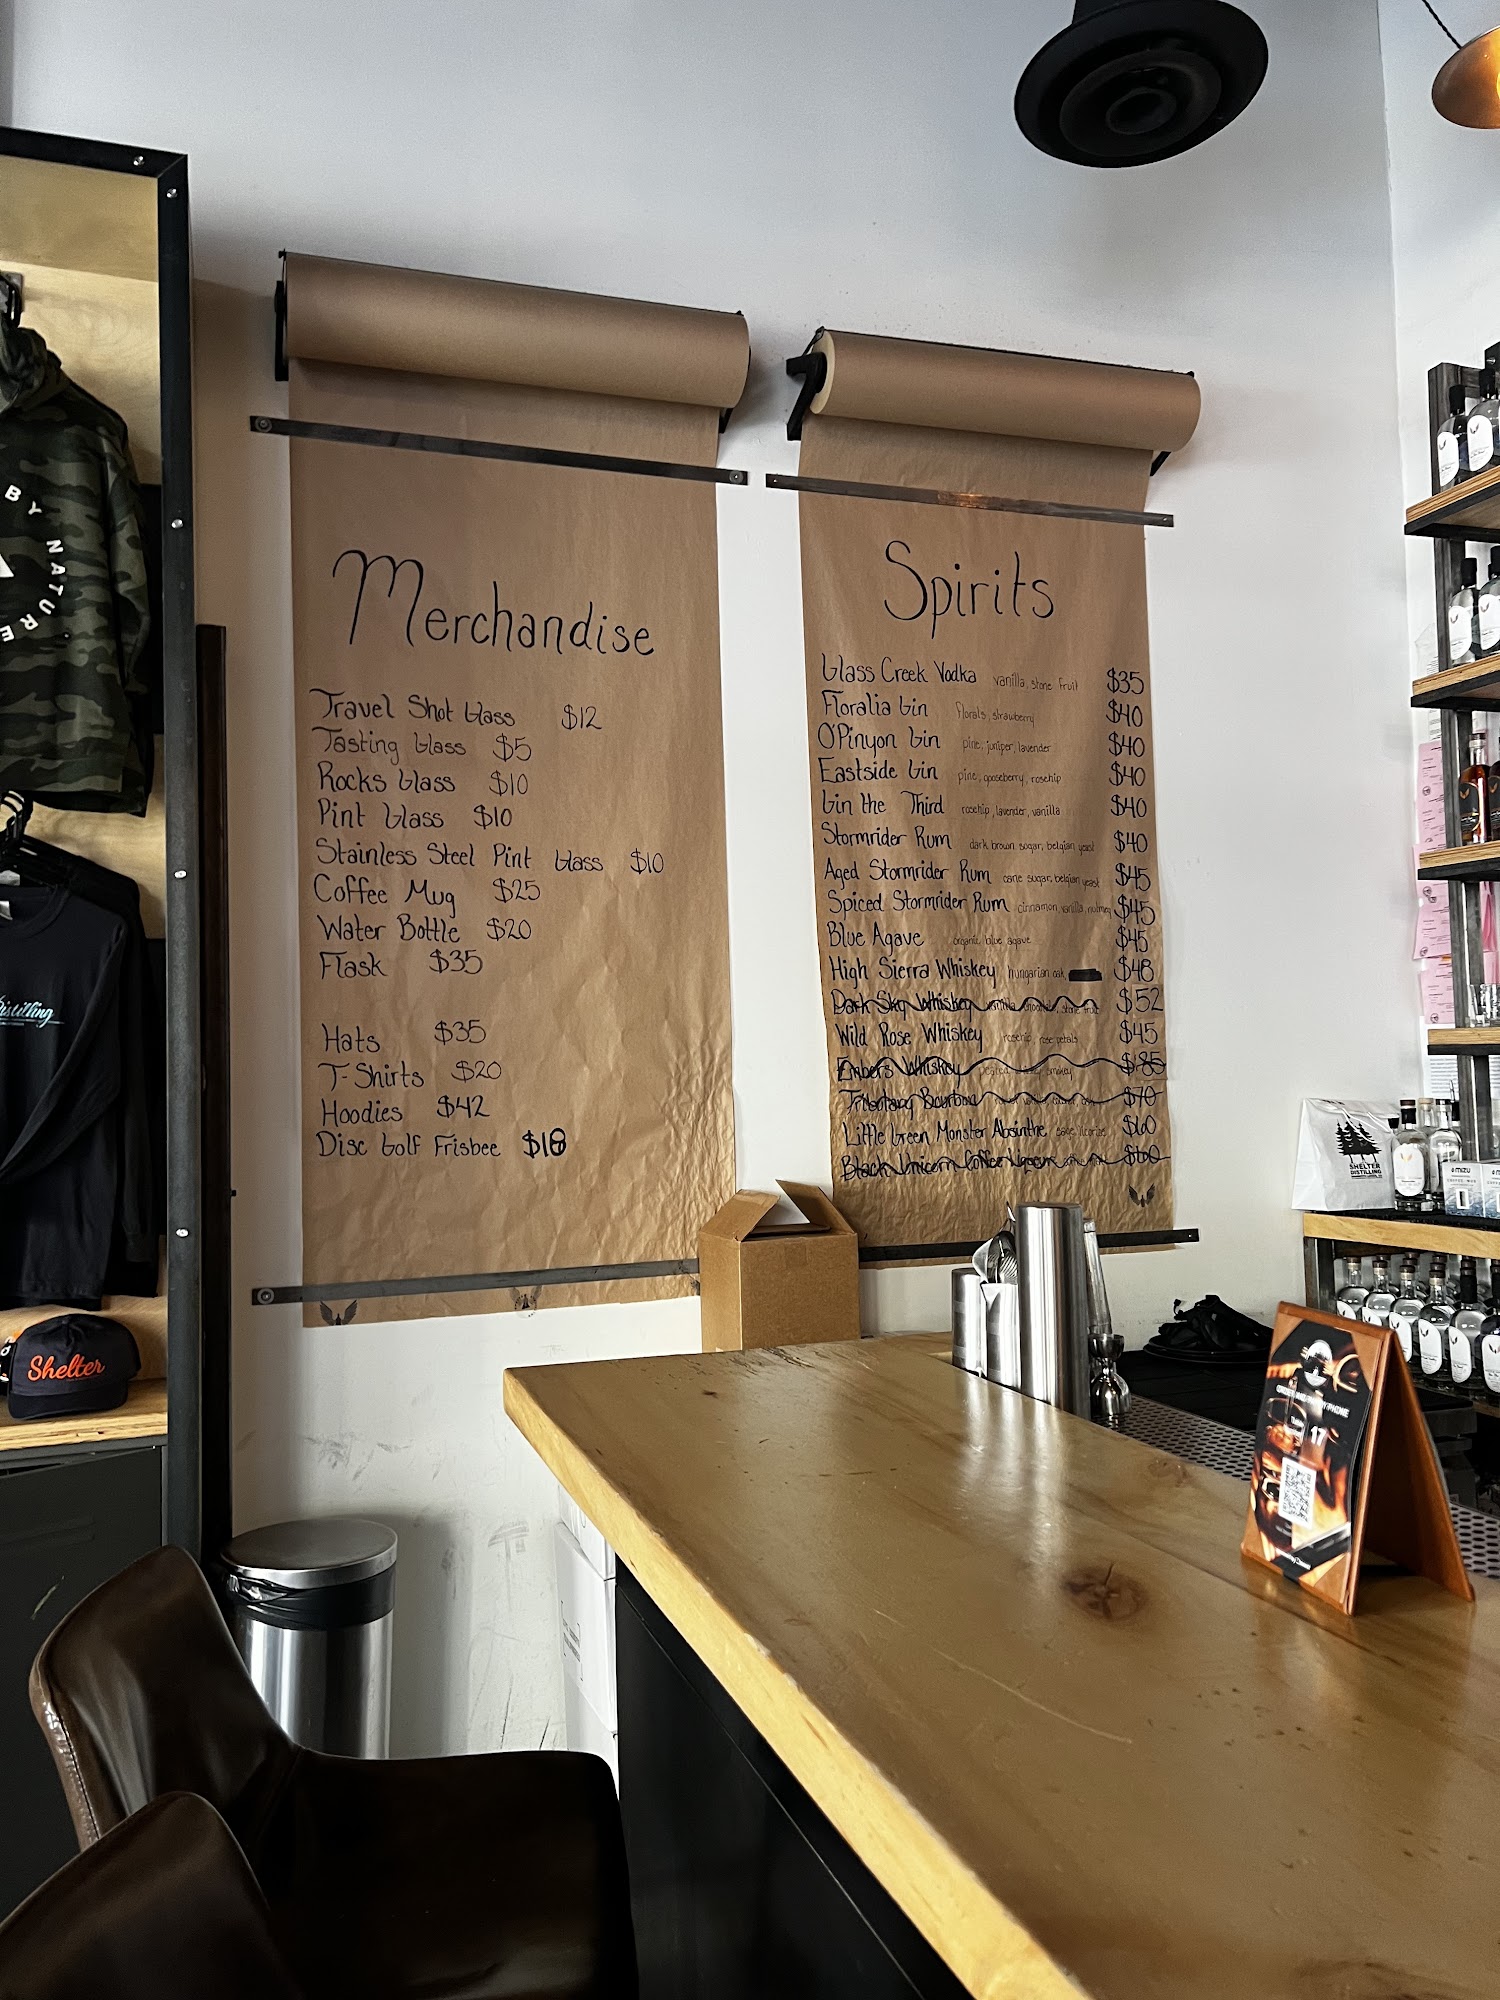 BY NATURE
Distilling
Shelter
Merchandise
Travel Shot Glass $12
Tasting Glass $5
Rocks Glass $10
Pint Glass $10
Stainless Steel Pint Glass $10
Coffee Mug $25
Water Bottle $20
Flask $35
Hats $35
T-Shirts $20
Hoodies $42
Disc Golf Frisbee $18
Spirits
Glass Creek Vodka vanilla, stone fruit $35
Floralia Gin florals, strawberry $40
O'Pinyon Gin pine, juniper, lavender $40
Eastside Gin pine, gooseberry, rosehip $40
Gin the Third rosehip, lavender, vanilla $40
Stormrider Rum dark brown sugar, belgian yeast $40
Aged Stormrider Rum cane sugar, belgian yeast $45
Spiced Stormrider Rum cinnamon, vanilla, nutmeg $45
Blue Agave organic blue agave $45
High Sierra Whiskey hungarian oak $48
Dark Sky Whiskey stone fruit $52
Wild Rose Whiskey rosehip, rose petals $45
Embers Whiskey smokey $85
Tributary Bourbon $70
Little Green Monster Absinthe $60
Black Unicorn Coffee Liqueur $60
SHELTER
DISTILLING
mizu
ORDER AND PAY BY PHONE
Table
17